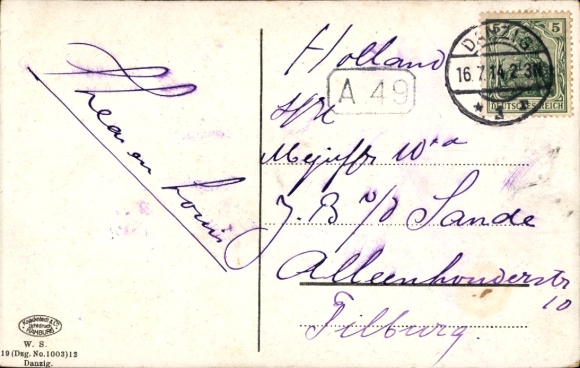 Holland
5
DANZIG
16.7.14. 2-3N
DEUTSCHES REICH
A 49
Mejuffr Wva
J. B v/d Sande
Alleenhouderstr
10
Tilburg.
Louis
Knackstedt & Co.
Lichtdruck
HAMBURG
W. S.
19 (Dzg. No. 1003) 12
Danzig.